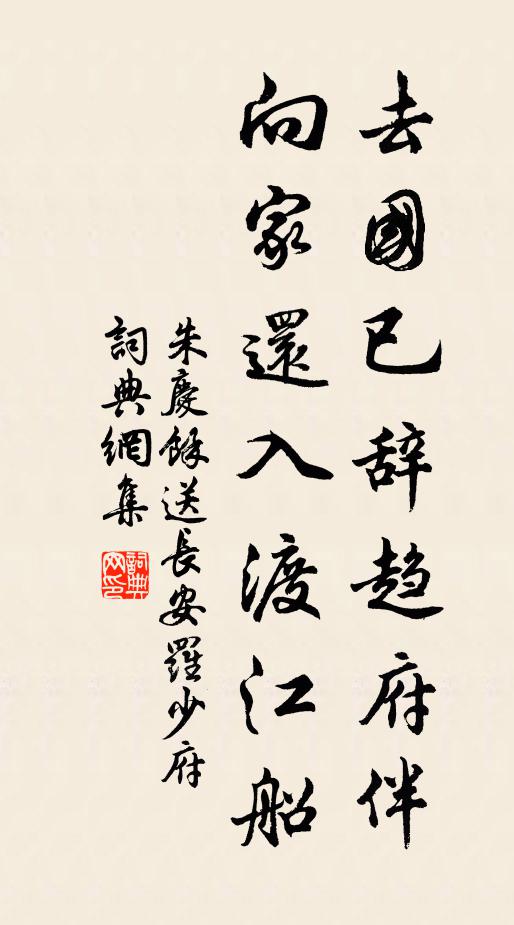 去國已辞趋府伴
向家還入渡江船
朱慶餘送長安羅少府
詞典網集
詞典網印